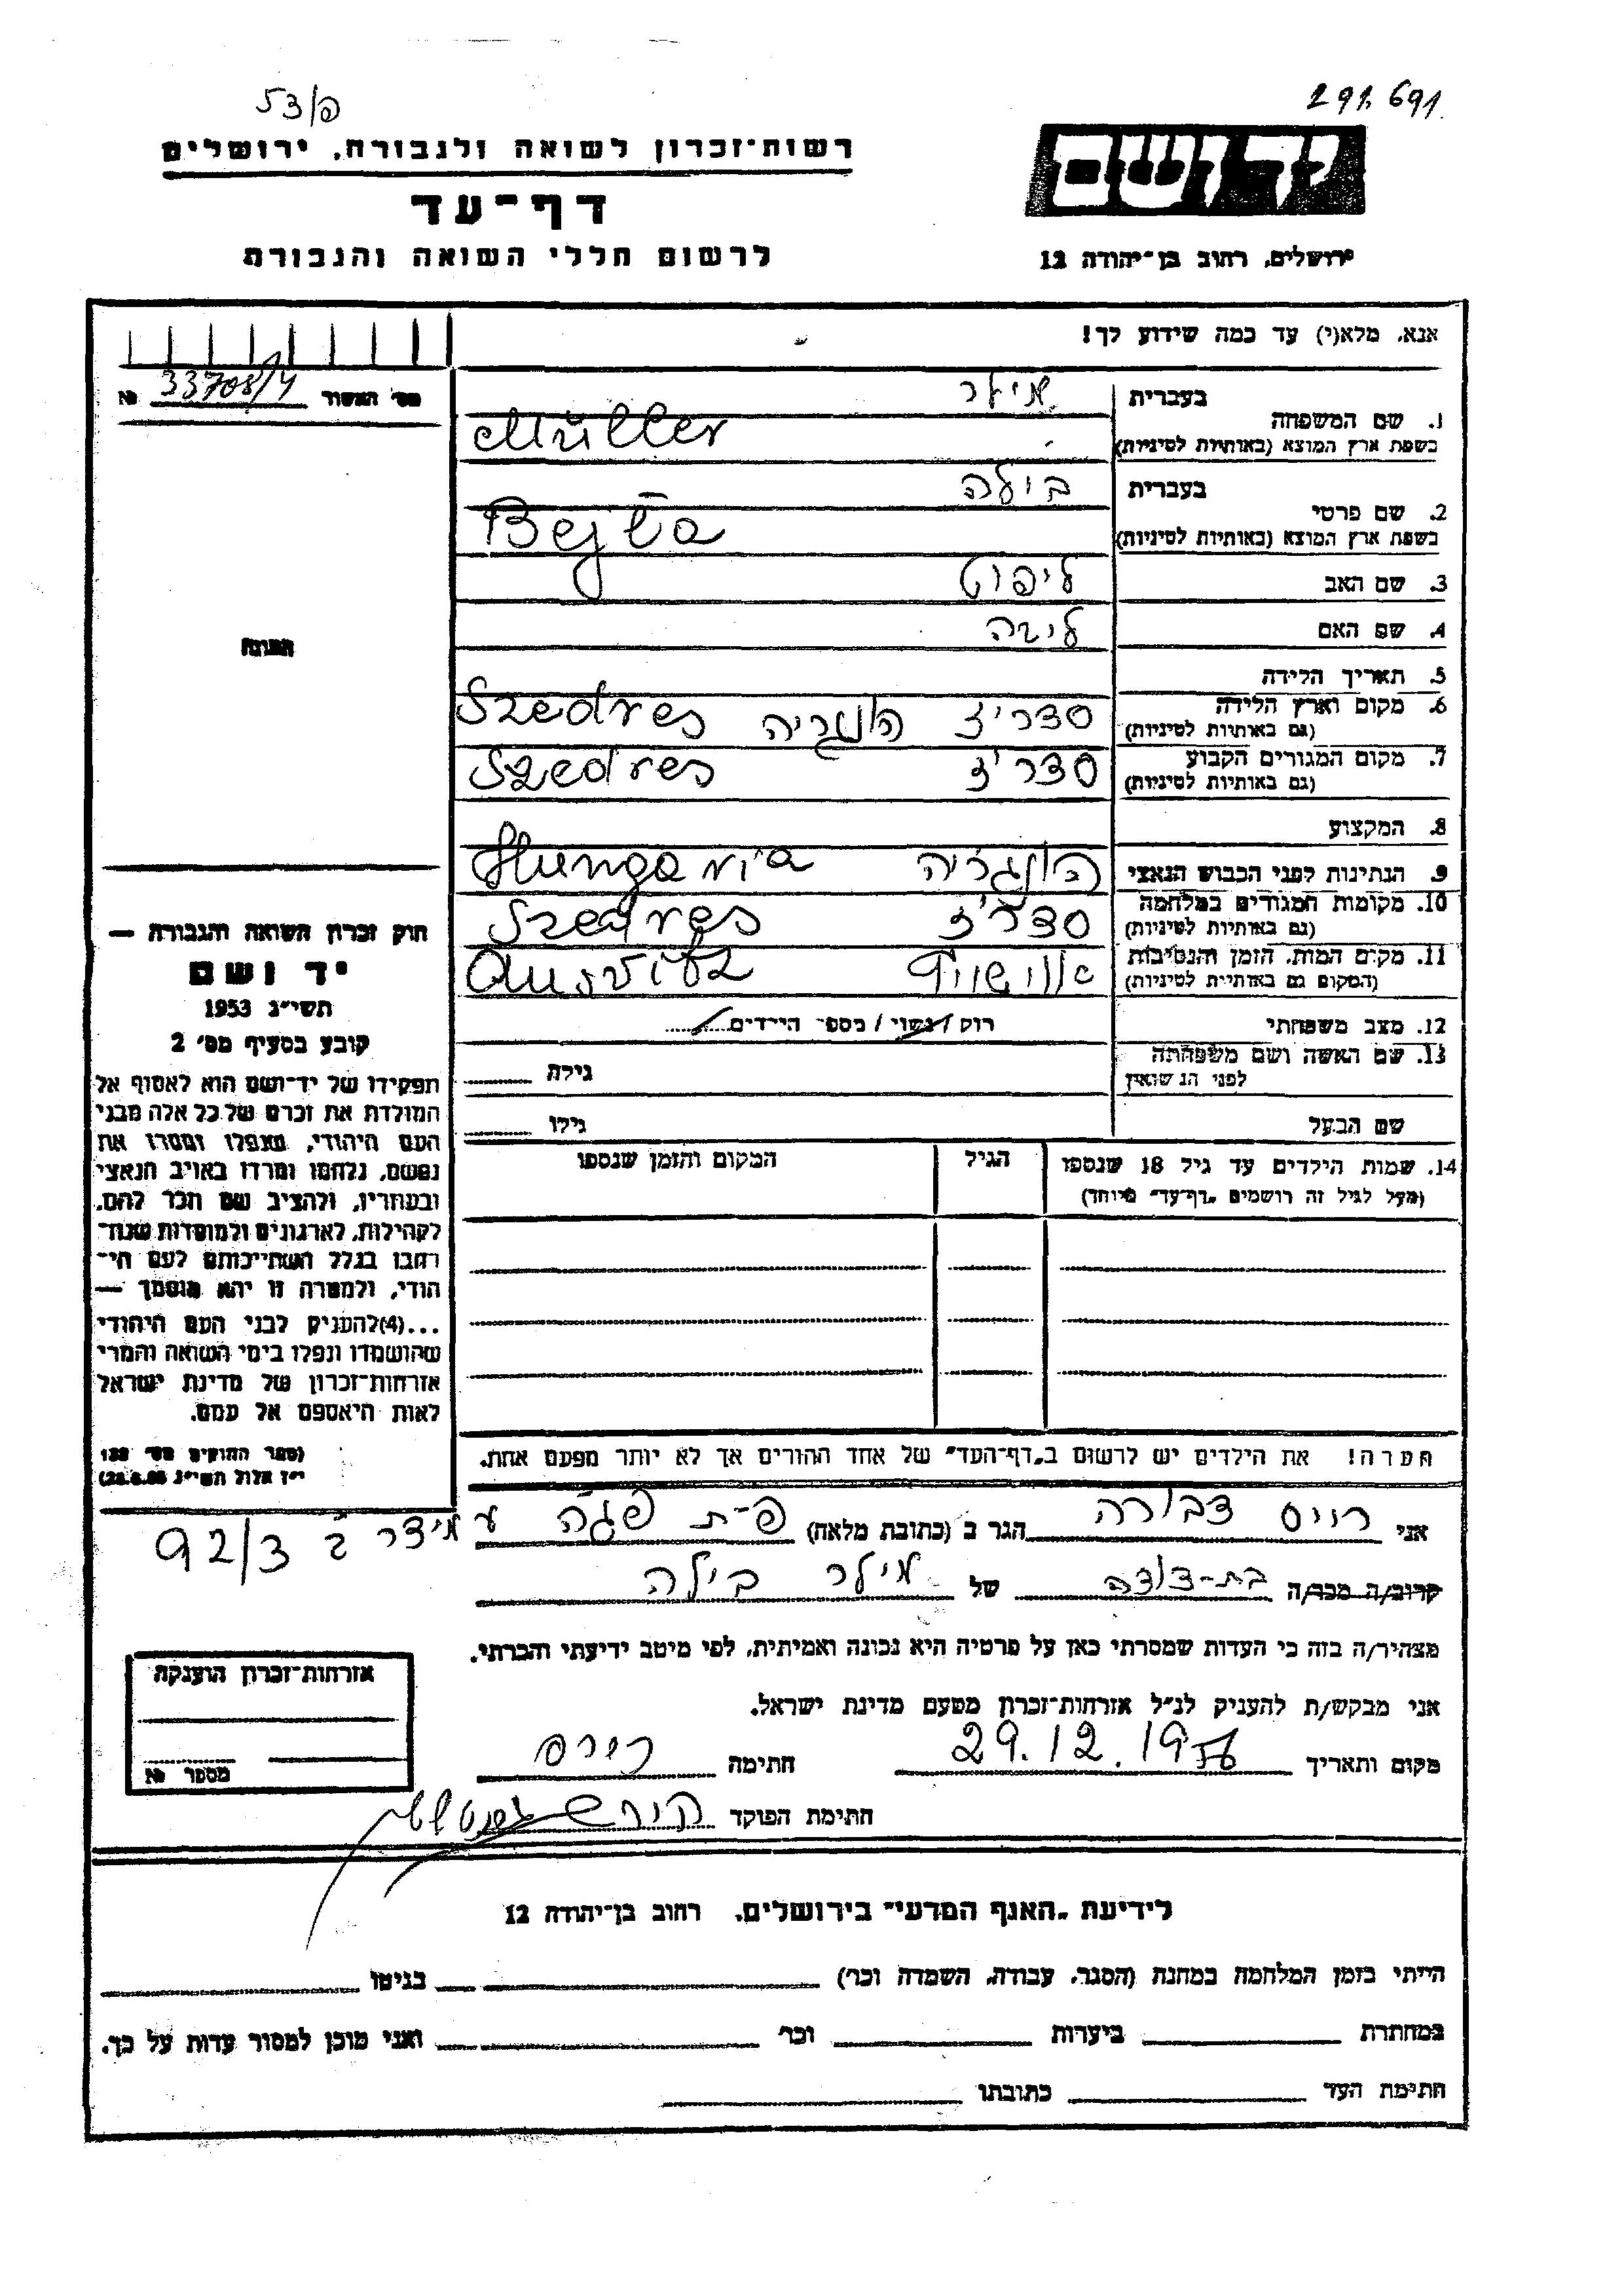 53/פ
291.691
רשות־זכרון לשואה ולגבורה, ירושלים
יד ושם
דף־עד
לרשום חללי השואה והגבורה
ירושלים, רחוב בן־יהודה 12
אנא, מלא(י) עד כמה שידוע לך!
מס׳ האשור № 33708/4
1. שם המשפחה בעברית מילר
בשפת ארץ המוצא (באותיות לטיניות) Müller
2. שם פרטי בעברית בילה
בשפת ארץ המוצא (באותיות לטיניות) Bejla
3. שם האב ליפוט
4. שם האם
5. תאריך הלידה
6. מקום וארץ הלידה (גם באותיות לטיניות) סדריז הונגריה Szedres
7. מקום המגורים הקבוע (גם באותיות לטיניות) סדריז Szedres
8. המקצוע
9. הנתינות לפני הכבוש הנאצי הונגריה Hungaria
10. מקומות המגורים במלחמה (גם באותיות לטיניות) סדריז Szedres
11. מקום המות, הזמן והנסיבות (המקום גם באותיות לטיניות) אוושוויץ
12. מצב משפחתי רוק/נשוי/מספר הילדים
13. שם האשה ושם משפחתה לפני הנשואין גילה
שם הבעל גילו
14. שמות הילדים עד גיל 18 שנספו הגיל המקום והזמן שנספו
(מעל לגיל זה רושמים „דף־עד" מיוחד)
הערה! את הילדים יש לרשום ב„דף־העד" של אחד ההורים אך לא יותר מפעם אחת.
התמונה
חוק זכרון השואה והגבורה —
יד ושם
תשי״ג 1953
קובע בסעיף מס׳ 2
תפקידו של יד־ושם הוא לאסוף אל
המולדת את זכרם של כל אלה מבני
העם היהודי, שנפלו ומסרו את
נפשם, נלחמו ומרדו באויב הנאצי
ובעוזריו, ולהציב שם וזכר להם,
לקהילות, לארגונים ולמוסדות שנח־
רבו בגלל השתייכותם לעם הי־
הודי, ולמטרה זו יהא מוסמך —
...(4)להעניק לבני העם היהודי
שהושמדו ונפלו בימי השואה והמרי
אזרחות־זכרון של מדינת ישראל
לאות היאספם אל עמם.
(ספר החוקים מס׳ 132
י״ז אלול תשי״ג 28.8.53)
אני רויס דבורה הגר ב (כתובת מלאה) פ-ת
92/3
קרוב/ה מכר/ה בת-דודה של מילר בילה
מצהיר/ה בזה כי העדות שמסרתי כאן על פרטיה היא נכונה ואמיתית, לפי מיטב ידיעתי והכרתי.
אני מבקש/ת להעניק לנ״ל אזרחות־זכרון מטעם מדינת ישראל.
מקום ותאריך 29.12.1956 חתימה רויס
חתימת הפוקד
אזרחות־זכרון הוענקה
מספר №
לידיעת „האגף המדעי" בירושלים, רחוב בן־יהודה 12
הייתי בזמן המלחמה במחנה (הסגר, עבודה, השמדה וכו׳) בגיטו
במחתרת ביערות וכו׳ ואני מוכן למסור עדות על כך.
חתימת העד כתובתו